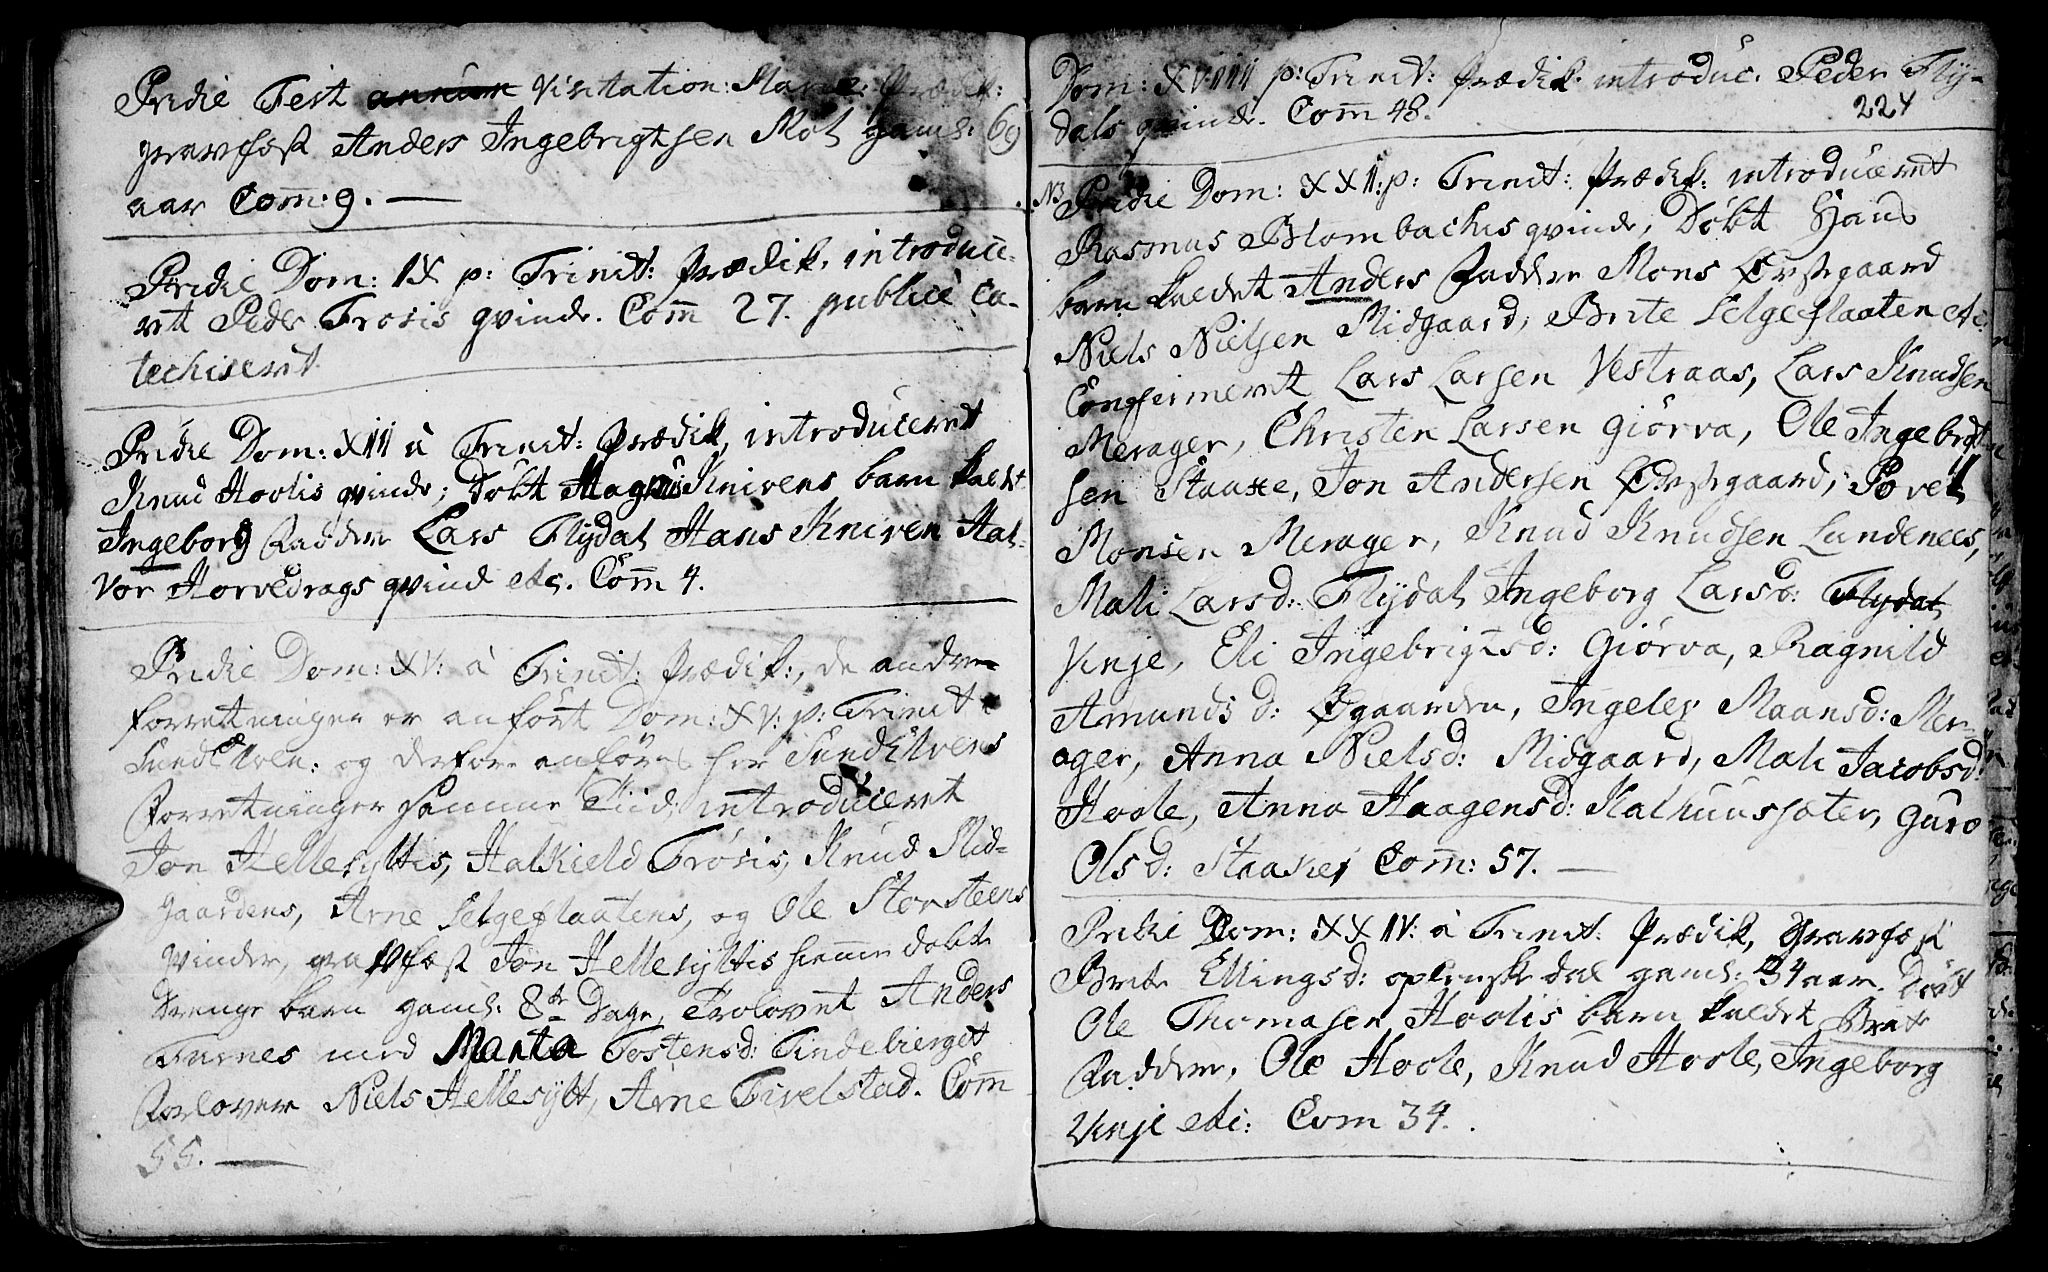 Pridie Fest annun Visitation: Mariæ: Prædik:
gravfæst Anders Ingebrigtsen Moℓ gaml: 69
aar Com̅: 9. —
Pridie Dom: IX p: Trinit: prædik, introduce-
ret Peder Frøsis qvinde. Com̅ 27. publice ca-
techiseret
Pridie Dom: XIII à Trinit: prædik, introduceret
Knud Hoolis qvinde; Døbt Magnus Knivens barn kaldet
Ingeborg Faddere Lars Flydal Hans Kniven Hal-
vor Horvedrags qvinde etc. Com̅ 4.
Pridie Dom: XV: à Trinit: prædik:, de andre
forretninger er anført Dom: XV: p: Trinit
Sundelven: og derfore anføres her Sundelvens
Forretninger samme Tiid, introduceret
Jon Hellesyltis, Halkield Frøsis, Knud Mid-
gaardens, Arne Selgeflaatens, og Ole Storsteens
qvinder, gravfæst Jon Hellesyltis hiemme døbte
Drenge barn gaml: 8te Dage, Trolovet Anders
Furnes med Marta Tostensd: Tindebierget
Forlovere Niels Hellesylt, Arne Tivelstad. Com̅
55. —
Dom: XVIII p: Trinit: prædik. introduc. Peder Fly-
dals qvinde. Com̅ 48.
224
N3 Pridie Dom: XXII: p: Trinit: Prædik: introduceret
Rasmus Blombachis qvinde, Døbt Hans
barn kaldet Anders Faddere Mons Ørstegaard
Niels Nielsen Midgaard, Brite Selgeflaaten etc:
Confirmeret Lars Larsen Vestraas, Lars Knudsen
Merager, Christen Larsen Giørva, Ole Ingebrigt
sen Staake, Jon Andersen Ørstegaard, Povel
Monsen Merager, Knud Knudsen Lundenees,
Mali Larsd: Flydal, Ingeborg Larsd: Flydal
Vinje, Eli Ingebrigtsd: Giørva, Ragnild
Amundsd: Øgaarden, Ingeler Maansd: Mer-
ager, Anna Nielsd: Midgaard, Mali Jacobsd:
Hoole, Anna Haagensd: Kalhuussæter, Guro
Olsd: Staake, Com̅: 57. —
Pridie Dom: XXIV: à Trinit: Prædik, Gravfæst
Brite Ellingsd: oplenskedal gaml: 34 aar. Døbt
Ole Thomasen Hoolis barn kaldet Brite
Faddere, Ole Hoole, Knud Hoole, Ingeborg
Vinje etc: Com 34.